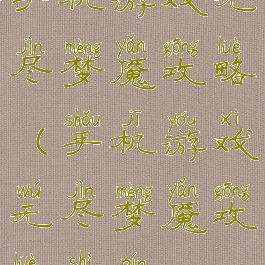 jìn mèng yǎn gōng lüè
尽梦魇攻略
shǒu jī yóu xì
(手机游戏
wú jìn mèng yǎn gōng
无尽梦魇攻
lüè shì pín